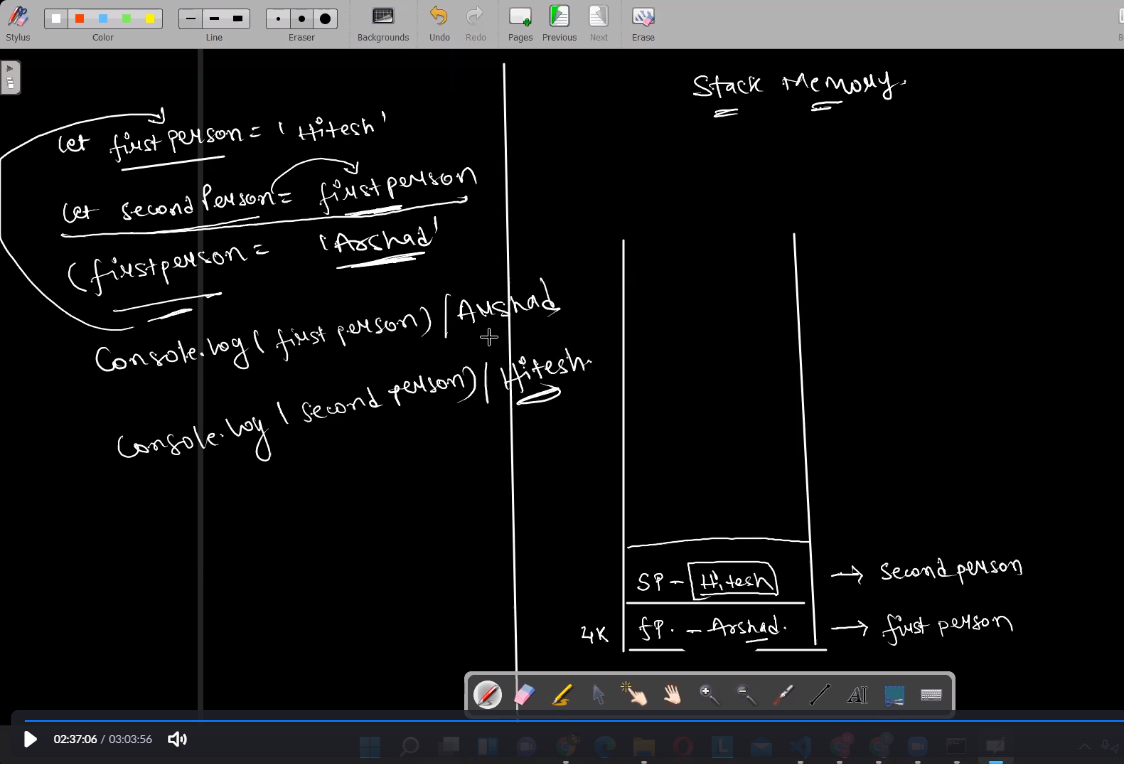 Stylus Color Line Eraser Backgrounds Undo Redo Pages Previous Next Erase
Stack Memory.
let firstperson = 'Hitesh'
let secondPerson = firstperson
(firstperson = 'Arshad'
Console.log( first person) / Arshad
Console.log ( second person) / Hitesh.
SP - Hitesh → Second person
4K fP. - Arshad. → first person
AI
02:37:06 / 03:03:56